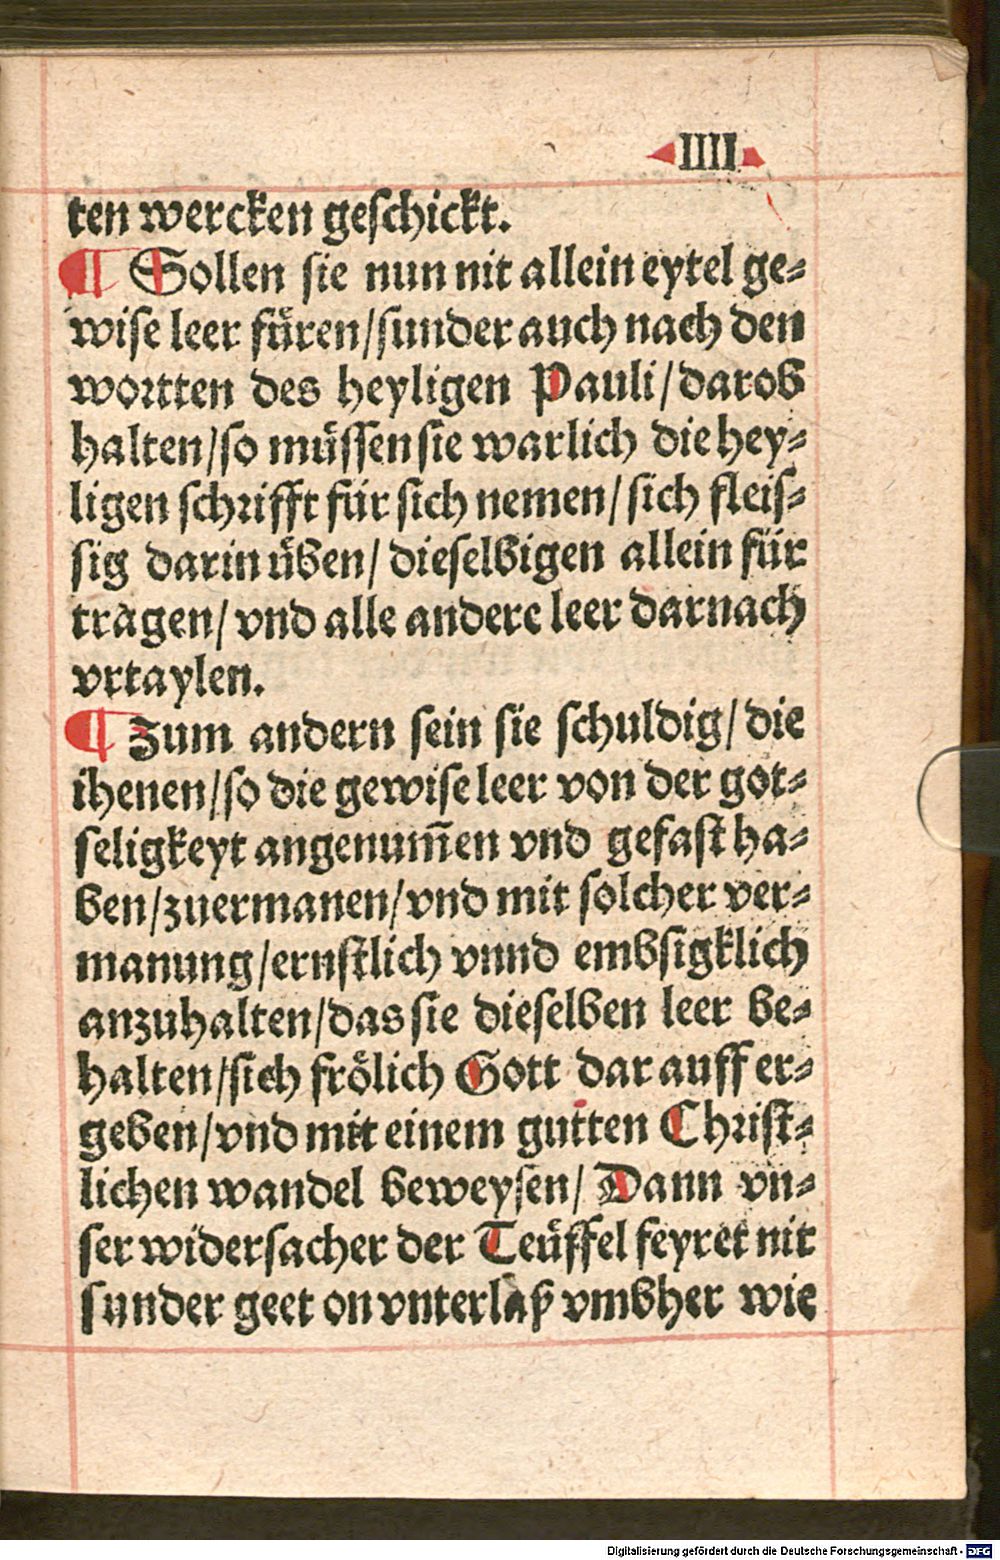 IIII
ten wercken geſchickt.
¶ Sollen ſie nun nit allein eytel ge⸗
wiſe leer fuͤren/ſunder auch nach den
wortten des heyligen Pauli/darob
halten/ſo muͤſſen ſie warlich die hey⸗
ligen ſchrifft für ſich nemen/ſich fleiſ⸗
ſig darin uͤben/dieſelbigen allein für
tragen/vnd alle andere leer darnach
vrtaylen.
¶ Zum andern ſein ſie ſchuldig/die
ihenen/ſo die gewiſe leer von der got⸗
ſeligkeyt angenum̃en vnd gefaſt ha⸗
ben/zuermanen/vnd mit ſolcher ver⸗
manung/ernſtlich vnnd embſigklich
anzuhalten/das ſie dieſelben leer be⸗
halten/ſich froͤlich Gott dar auff er⸗
geben/vnd mit einem gutten Chriſt⸗
lichen wandel beweyſen/Dann vn⸗
ſer widerſacher der Teuͤffel feyret nit
ſunder geet on vnterlaß vmbher wie
Digitalisierung gefördert durch die Deutsche Forschungsgemeinschaft - DFG